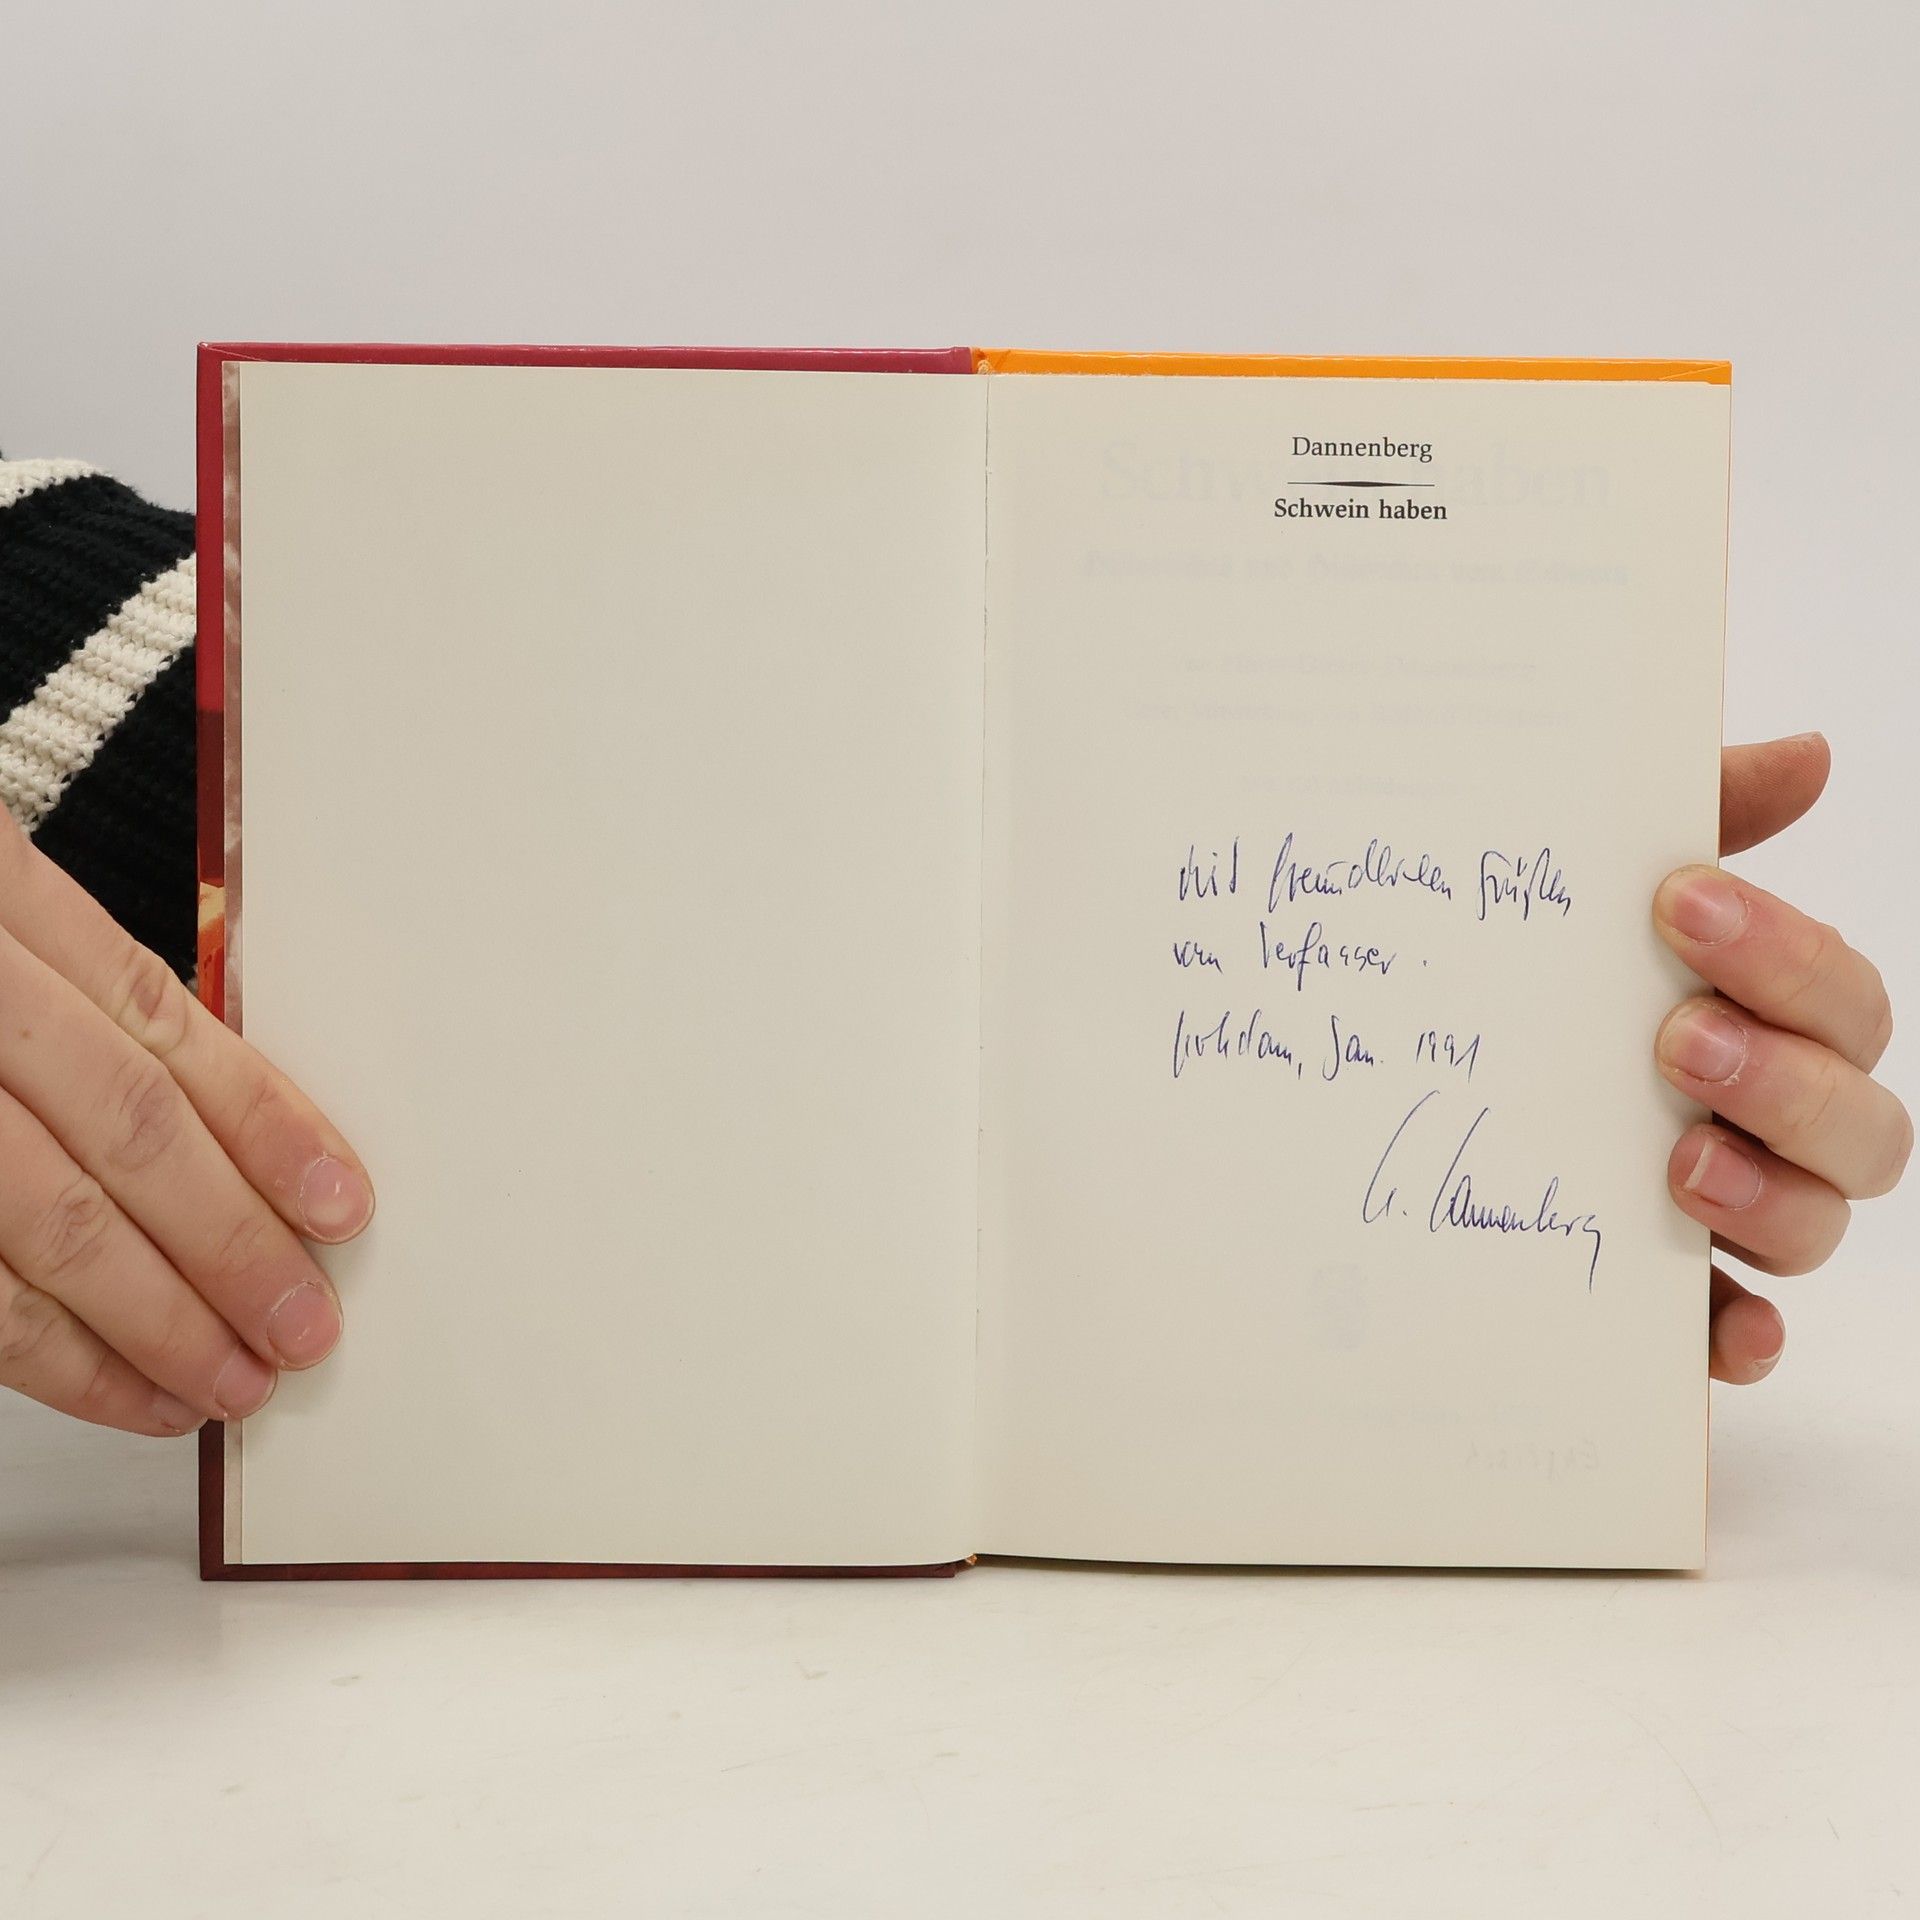 Dannenberg
Schwein haben
Mit freundlichen Grüßen
vom Verfasser.
Potsdam, Jan. 1991
Dannenberg